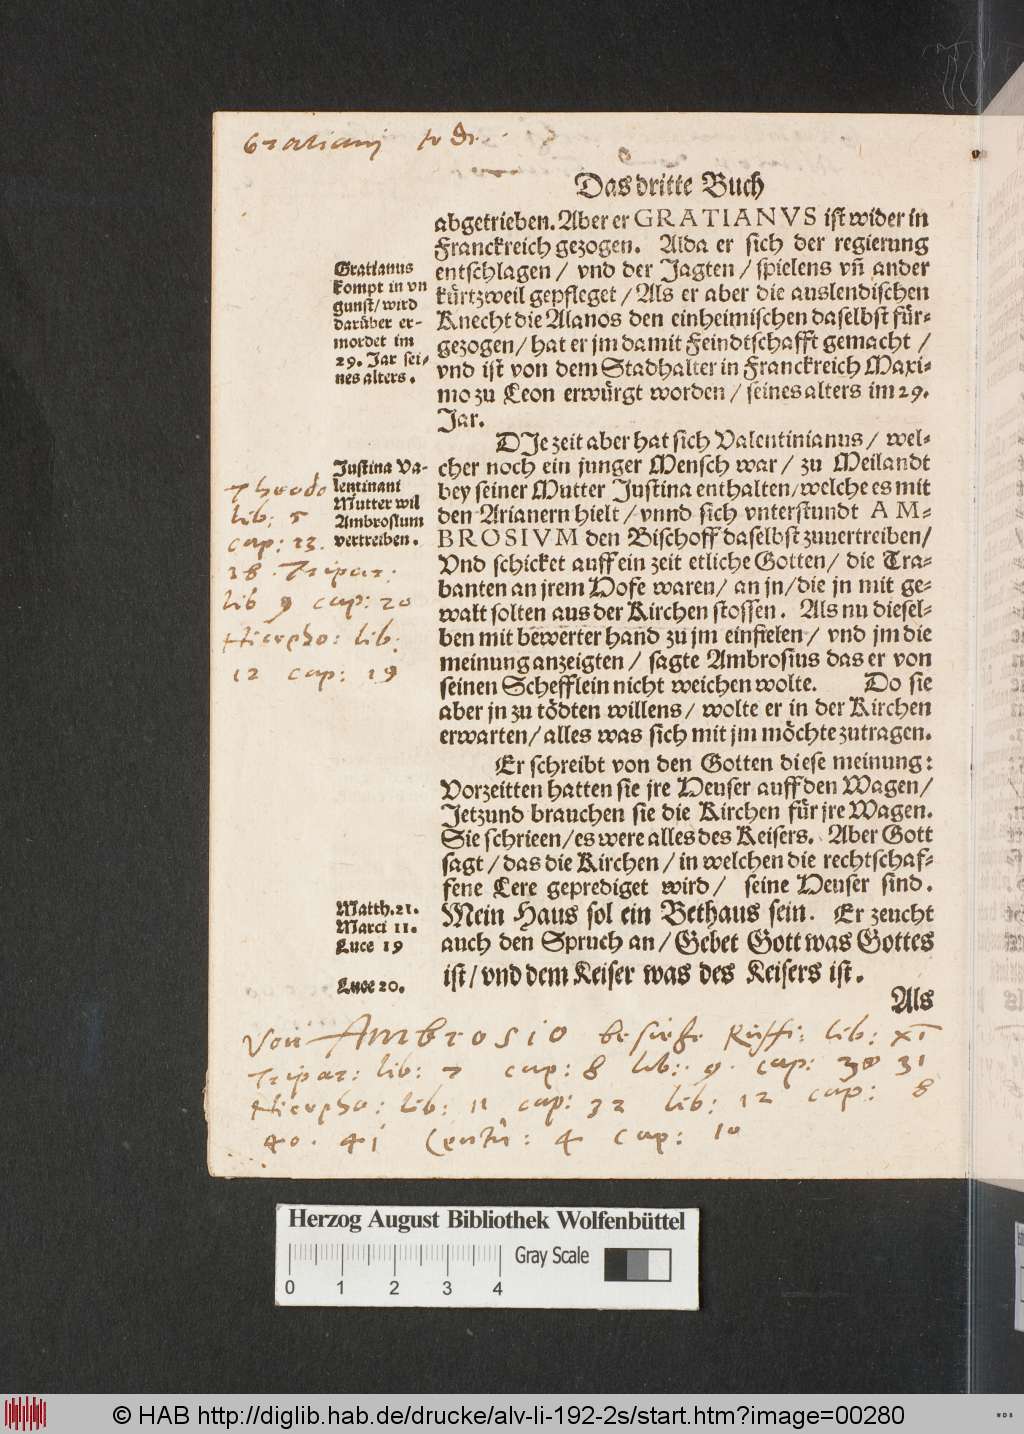 Gratianj todt.
Das dritte Buch
abgetrieben. Aber er GRATIANVS ist wider in
Franckreich gezogen. Alda er sich der regierung
entschlagen / vnd der Jagten / spielens vñ ander
kürtzweil gepfleget / Als er aber die auslendischen
Knecht die Alanos den einheimischen daselbst für-
gezogen / hat er jm damit Feindtschafft gemacht /
vnd ist von dem Stadhalter in Franckreich Maxi-
mo zu Leon erwürgt worden / seines alters im 29.
Jar.
Gratianus
kompt in vn
gunst / wird
darüber er-
mordet im
29. Jar sei-
nes alters.
DJe zeit aber hat sich Valentinianus / wel-
cher noch ein junger Mensch war / zu Meilandt
bey seiner Mutter Justina enthalten / welche es mit
den Arianern hielt / vnnd sich vnterstundt AM-
BROSIVM den Bischoff daselbst zuuertreiben /
Vnd schicket auff ein zeit etliche Gotten / die Tra-
banten an jrem Hofe waren / an jn / die jn mit ge-
walt solten aus der Kirchen stossen. Als nu diesel-
ben mit bewerter hand zu jm einfielen / vnd jm die
meinung anzeigten / sagte Ambrosius das er von
seinen Schefflein nicht weichen wolte. Do sie
aber jn zu tödten willens / wolte er in der Kirchen
erwarten / alles was sich mit jm möchte zutragen.
Justina Va-
lentinani
Mutter wil
Ambrosium
vertreiben.
Theodo
lib: 5
cap: 13.
18. Tripar:
lib 9 cap: 20
Nicepho: lib:
12 cap: 19
Er schreibt von den Gotten diese meinung:
Vorzeitten hatten sie jre Heuser auff den Wagen /
Jetzund brauchen sie die Kirchen für jre Wagen.
Sie schrieen / es were alles des Keisers. Aber Gott
sagt / das die Kirchen / in welchen die rechtschaf-
fene Lere geprediget wird / seine Heuser sind.
Mein Haus sol ein Bethaus sein. Er zeucht
auch den Spruch an / Gebet Gott was Gottes
ist / vnd dem Keiser was des Keisers ist.
Matth. 21.
Marci 11.
Luce 19
Luce 20.
Als
Von Ambrosio besiehe Ruffi: lib: XI
Tripar: lib: 7 cap: 8 lib: 9. cap: 30 31
Nicepho: lib: 11 cap: 32 lib: 12 cap: 8
40. 41 Centu: 4 cap: 10
Herzog August Bibliothek Wolfenbüttel
Gray Scale
0 1 2 3 4
© HAB http://diglib.hab.de/drucke/alv-li-192-2s/start.htm?image=00280